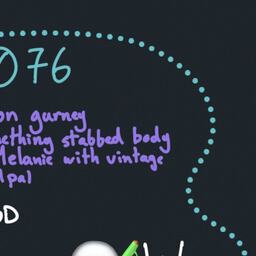 076
on gurney
ething stabbed body
Melanie with vintage
pal
D